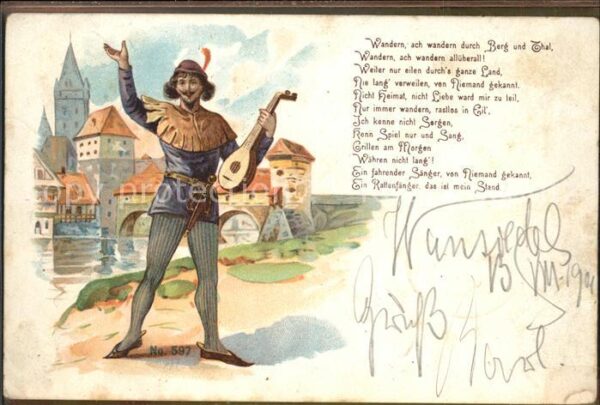 Wandern, ach wandern durch Berg und Thal,
Wandern, ach wandern allüberall!
Weiter nur eilen durch's ganze Land,
Nie lang' verweilen, von Niemand gekannt.
Nicht Heimat, nicht Liebe ward mir zu teil,
Nur immer wandern, rastlos in Eil',
Ich kenne nicht Sorgen,
Kenn Spiel nur und Sang,
Grillen am Morgen
Währen nicht lang'!
Ein fahrender Sänger, von Niemand gekannt,
Ein Rattenfänger, das ist mein Stand
Wunsiedel
13 VII
Gruß
No. 597